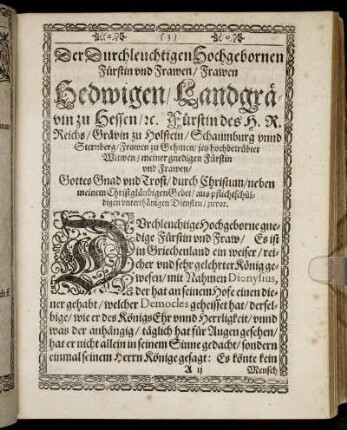 ( 3 )
Der Durchleuchtigen Hochgebornen
Fürstin vnd Frawen / Frawen
Hedwigen / Landgrä-
vin zu Hessen / ꝛc. Fürstin des H. R.
Reichs / Grävin zu Holstein / Schaumburg vnnd
Sternberg / Frawen zu Gehmen / jetz hochbetrübter
Witwen / meiner gnedigen Fürstin
vnd Frawen /
Gottes Gnad vnd Trost / durch Christum / neben
meinem Christgläubigen Gebet / aus pflichtschül-
digen vnterthänigen Diensten / zuvor.
DVrchleuchtige Hochgeborne gne-
dige Fürstin vnd Fraw / Es ist
in Griechenland ein weiser / rei-
cher vnd sehr gelehrter König ge-
wesen / mit Nahmen Dionysius,
der hat an seinem Hofe einen die-
ner gehabt / welcher Democles geheisset hat / dersel-
bige / wie er des Königs Ehr vnnd Herrligkeit / vnnd
was der anhängig / täglich hat für Augen gesehen /
hat er nicht allein in seinem Sinne gedacht / sondern
einmal seinem Herrn Könige gesagt: Es könte kein
A ij Mensch